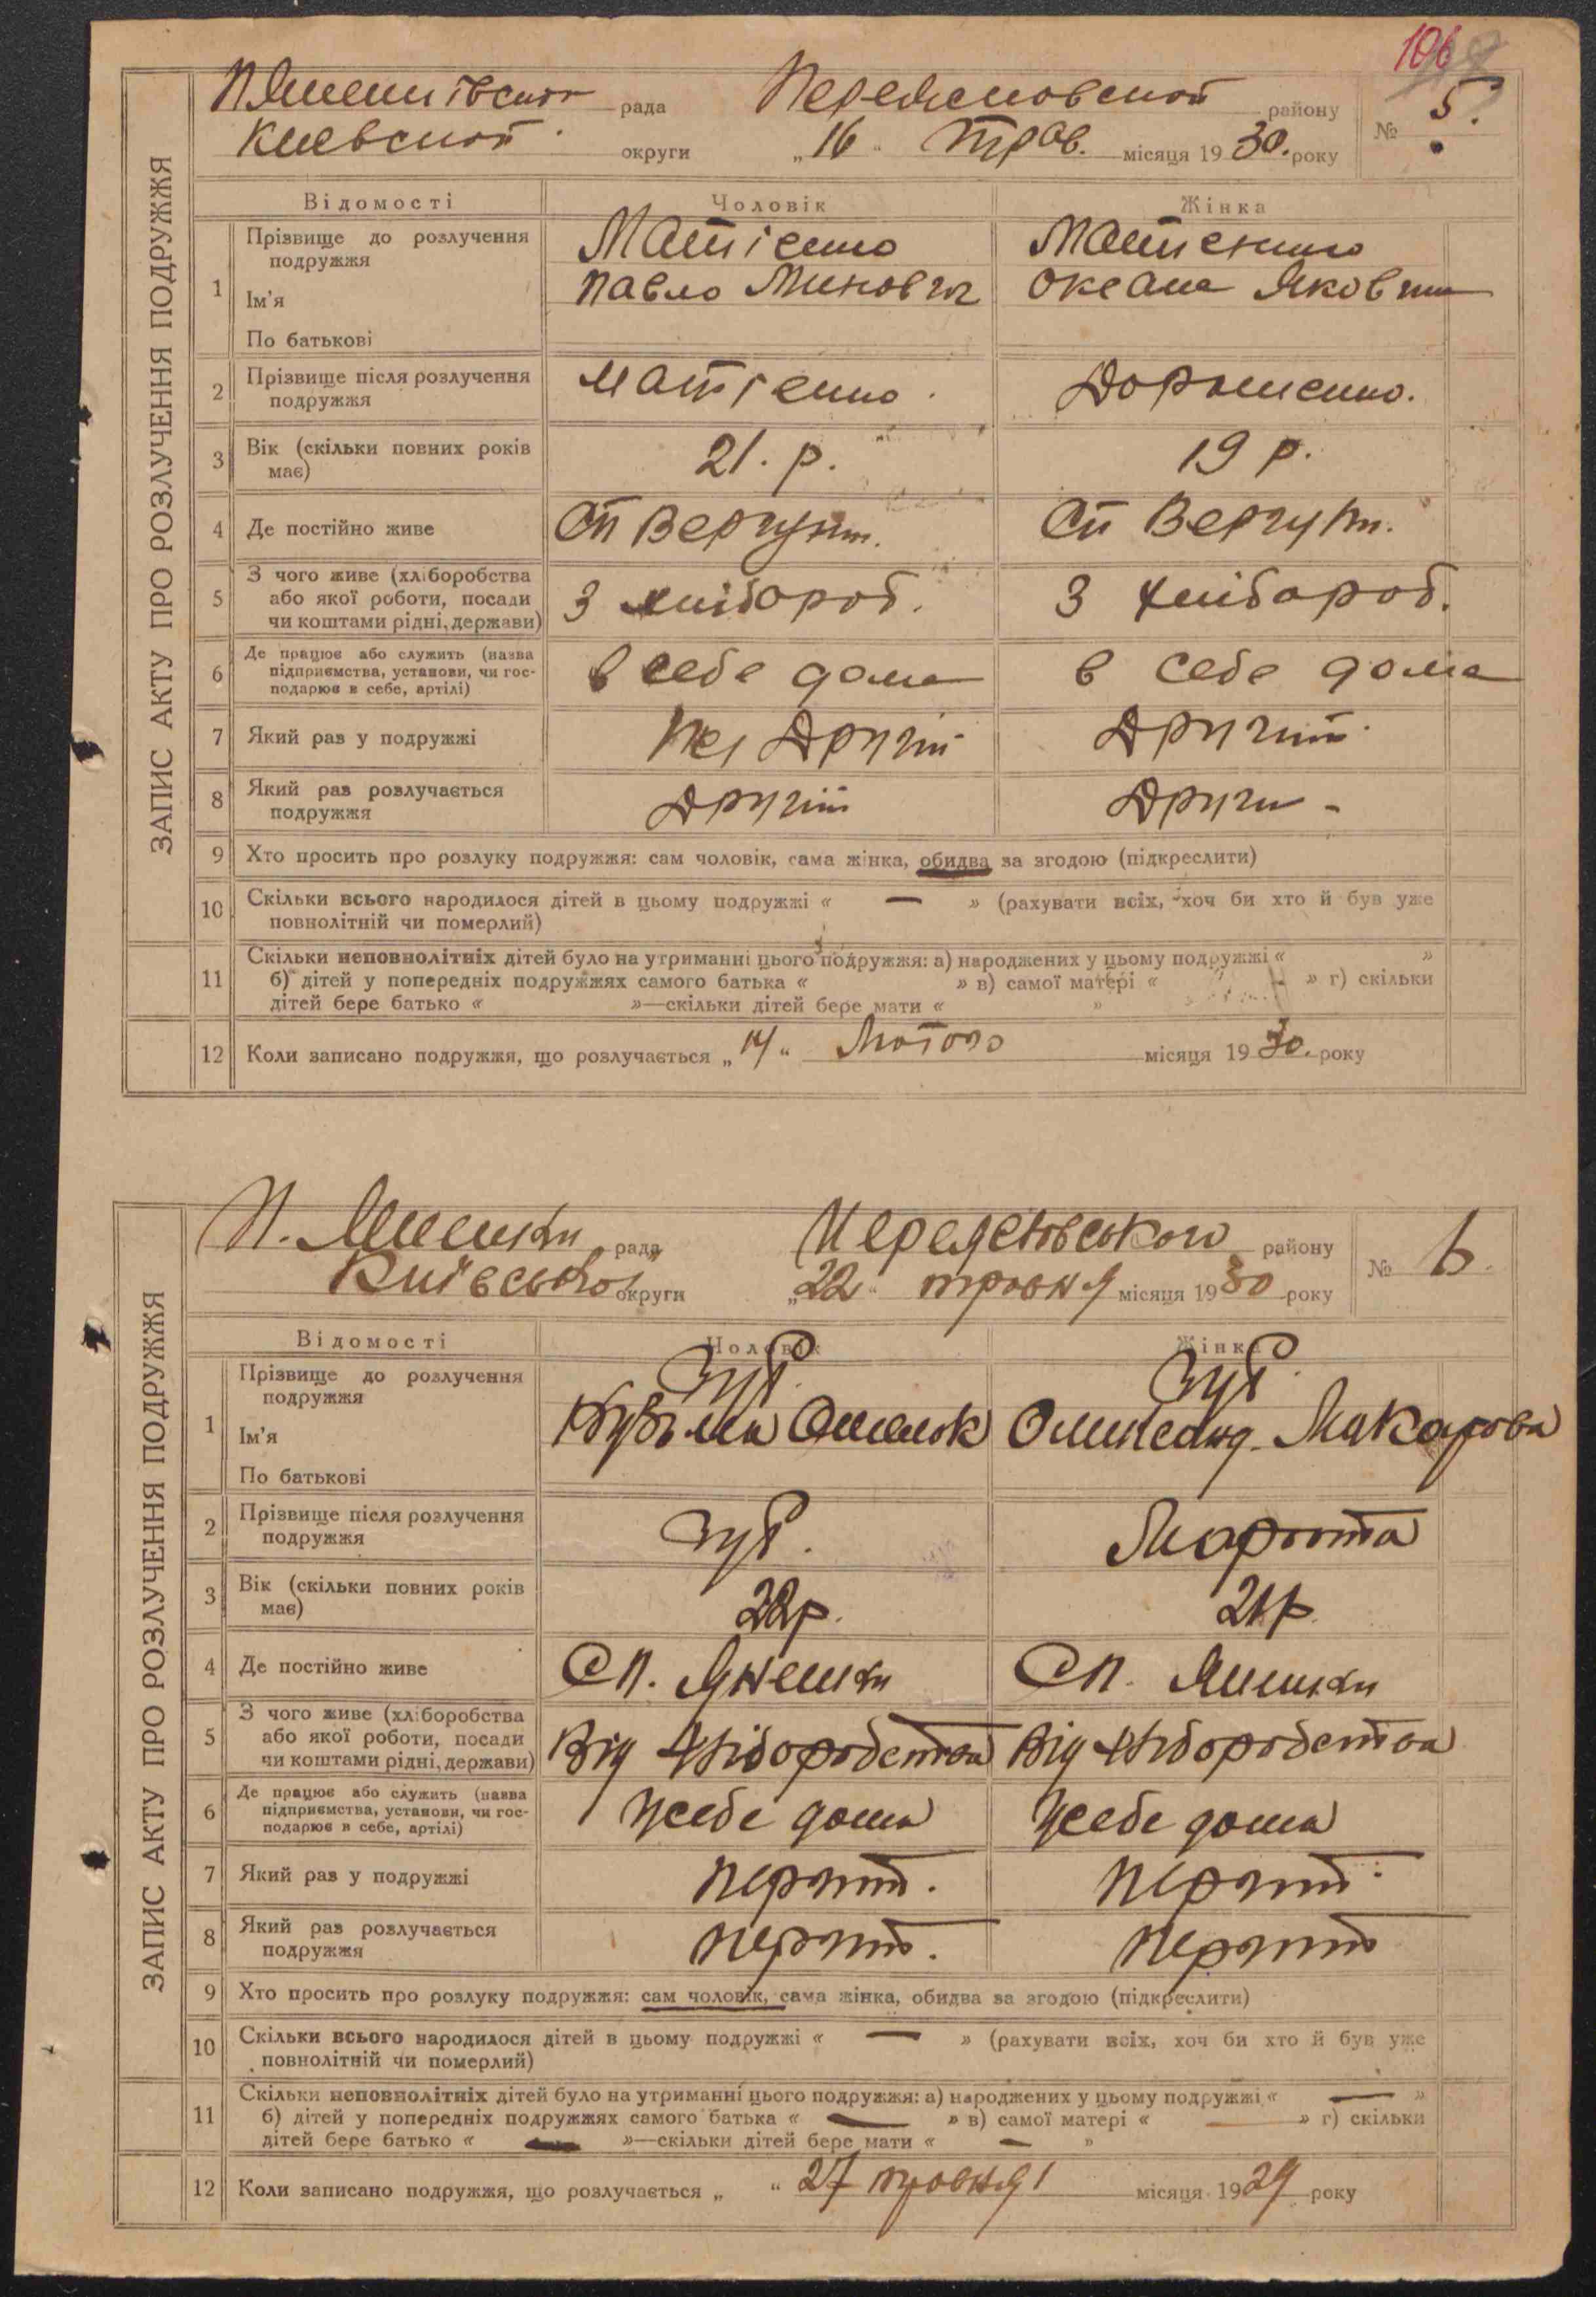 106
ЗАПИС АКТУ ПРО РОЗЛУЧЕННЯ ПОДРУЖЖЯ
рада Переясловской району
Киевской округи „16“ трав. місяця 1930. року № 5.
Відомості Чоловік Жінка
1 Прізвище до розлучення подружжя Матіенко Матиенко
Ім'я Павло Оксана
По батькові
2 Прізвище після розлучення подружжя Матіенко. Дорошенко.
3 Вік (скільки повних років має) 21. р. 19 р.
4 Де постійно живе Сп Вергуни. Сп Вергуни.
5 З чого живе (хліборобства або якої роботи, посади чи коштами рідні, держави) З хлібороб. З хлібороб.
6 Де працює або служить (назва підприємства, установи, чи господарює в себе, артілі) в себе дома в себе дома
7 Який раз у подружжі Другий Другий
8 Який раз розлучається подружжя Другий Други -
9 Хто просить про розлуку подружжя: сам чоловік, сама жінка, обидва за згодою (підкреслити)
10 Скільки всього народилося дітей в цьому подружжі « — » (рахувати всіх, хоч би хто й був уже
повнолітній чи померлий)
11 Скільки неповнолітніх дітей було на утриманні цього подружжя: а) народжених у цьому подружжі « »
б) дітей у попередніх подружжях самого батька « » в) самої матері « » г) скільки
дітей бере батько « »—скільки дітей бере мати « »
12 Коли записано подружжя, що розлучається „14“ Лютого місяця 1930. року
ЗАПИС АКТУ ПРО РОЗЛУЧЕННЯ ПОДРУЖЖЯ
П. Яненки рада району
Київської округи „22“ травня місяця 1930 року № 6.
Відомості Чоловік Жінка
1 Прізвище до розлучення подружжя Зуб. Зуб.
Ім'я Кузьма Омелюк Олександ. Макарова
По батькові
2 Прізвище після розлучення подружжя Зуб.
3 Вік (скільки повних років має) 22р. 21р
4 Де постійно живе Сп. Яненки Сп. Яненки
5 З чого живе (хліборобства або якої роботи, посади чи коштами рідні, держави) Від хліборобства Від хліборобства
6 Де працює або служить (назва підприємства, установи, чи господарює в себе, артілі) У себе дома У себе дома
7 Який раз у подружжі перший. перший.
8 Який раз розлучається подружжя перший. перший
9 Хто просить про розлуку подружжя: сам чоловік, сама жінка, обидва за згодою (підкреслити)
10 Скільки всього народилося дітей в цьому подружжі « — » (рахувати всіх, хоч би хто й був уже
повнолітній чи померлий)
11 Скільки неповнолітніх дітей було на утриманні цього подружжя: а) народжених у цьому подружжі « — »
б) дітей у попередніх подружжях самого батька « — » в) самої матері « — » г) скільки
дітей бере батько « — »—скільки дітей бере мати « — »
12 Коли записано подружжя, що розлучається „ “ 27 травня місяця 1929 року